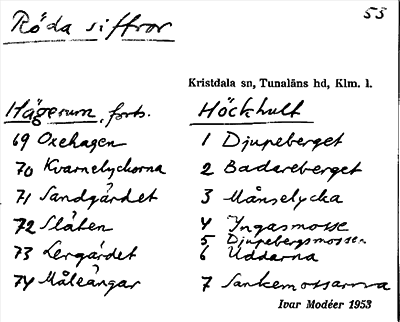 Röda siffror
53
Kristdala sn, Tunaläns hd, Klm. l.
Hägerum, forts.
69 Oxehagen
70 Kvarnelyckorna
71 Sandgärdet
72 Slåten
73 Lergärdet
74 Måleängar
Höckhult
1 Djupeberget
2 Badareberget
3 Månselycka
4 Yngasmosse
5 Djupebergsmossen
6 Uddarna
7 Sankemossarna
Ivar Modéer 1953